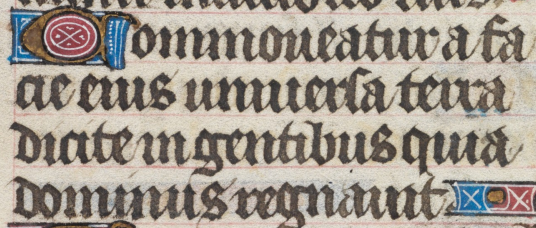 Commoueatur a fa
cie eius uniuersa terra
dicite in gentibus quia
dominus regnauit